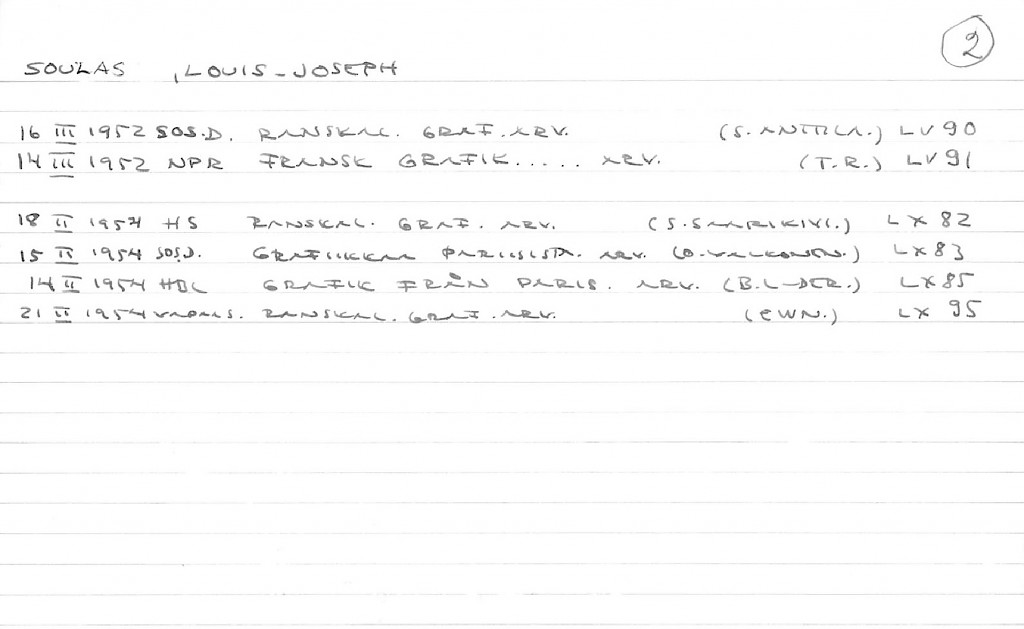 2
SOULAS , LOUIS-JOSEPH
16 III 1952 SOS.D. RANSKAL. GRAF. ARV. (S. ANTTILA.) LV 90
14 III 1952 NPR FRANSK GRAFIK..... ARV. (T.R.) LV 91
18 II 1954 HS RANSKAL. GRAF. ARV. (S. SAARIKIVI.) LX 82
15 II 1954 SOS.D. GRAFIIKKAA PARIISISTA. ARV. (O. VALKONEN.) LX 83
14 II 1954 HBL GRAFIK FRÅN PARIS. ARV. (B.L-DER.) LX 85
21 II 1954 VAPAA S. RANSKAL. GRAF. ARV. (EWN.) LX 95